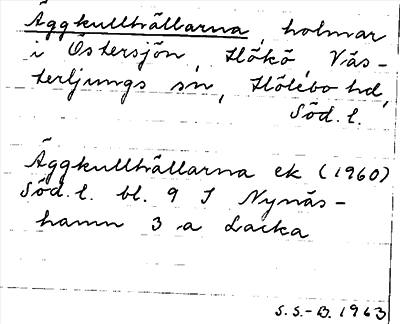 Äggkullhällarna, holmar
i Östersjön, Hökö, Väs-
terljungs sn, Hölebo hd,
Söd. l.
Äggkullhällarna ek (1960)
Söd. l. bl. 9 I Nynäs-
hamn 3 a Lacka
S.S.-B. 1963